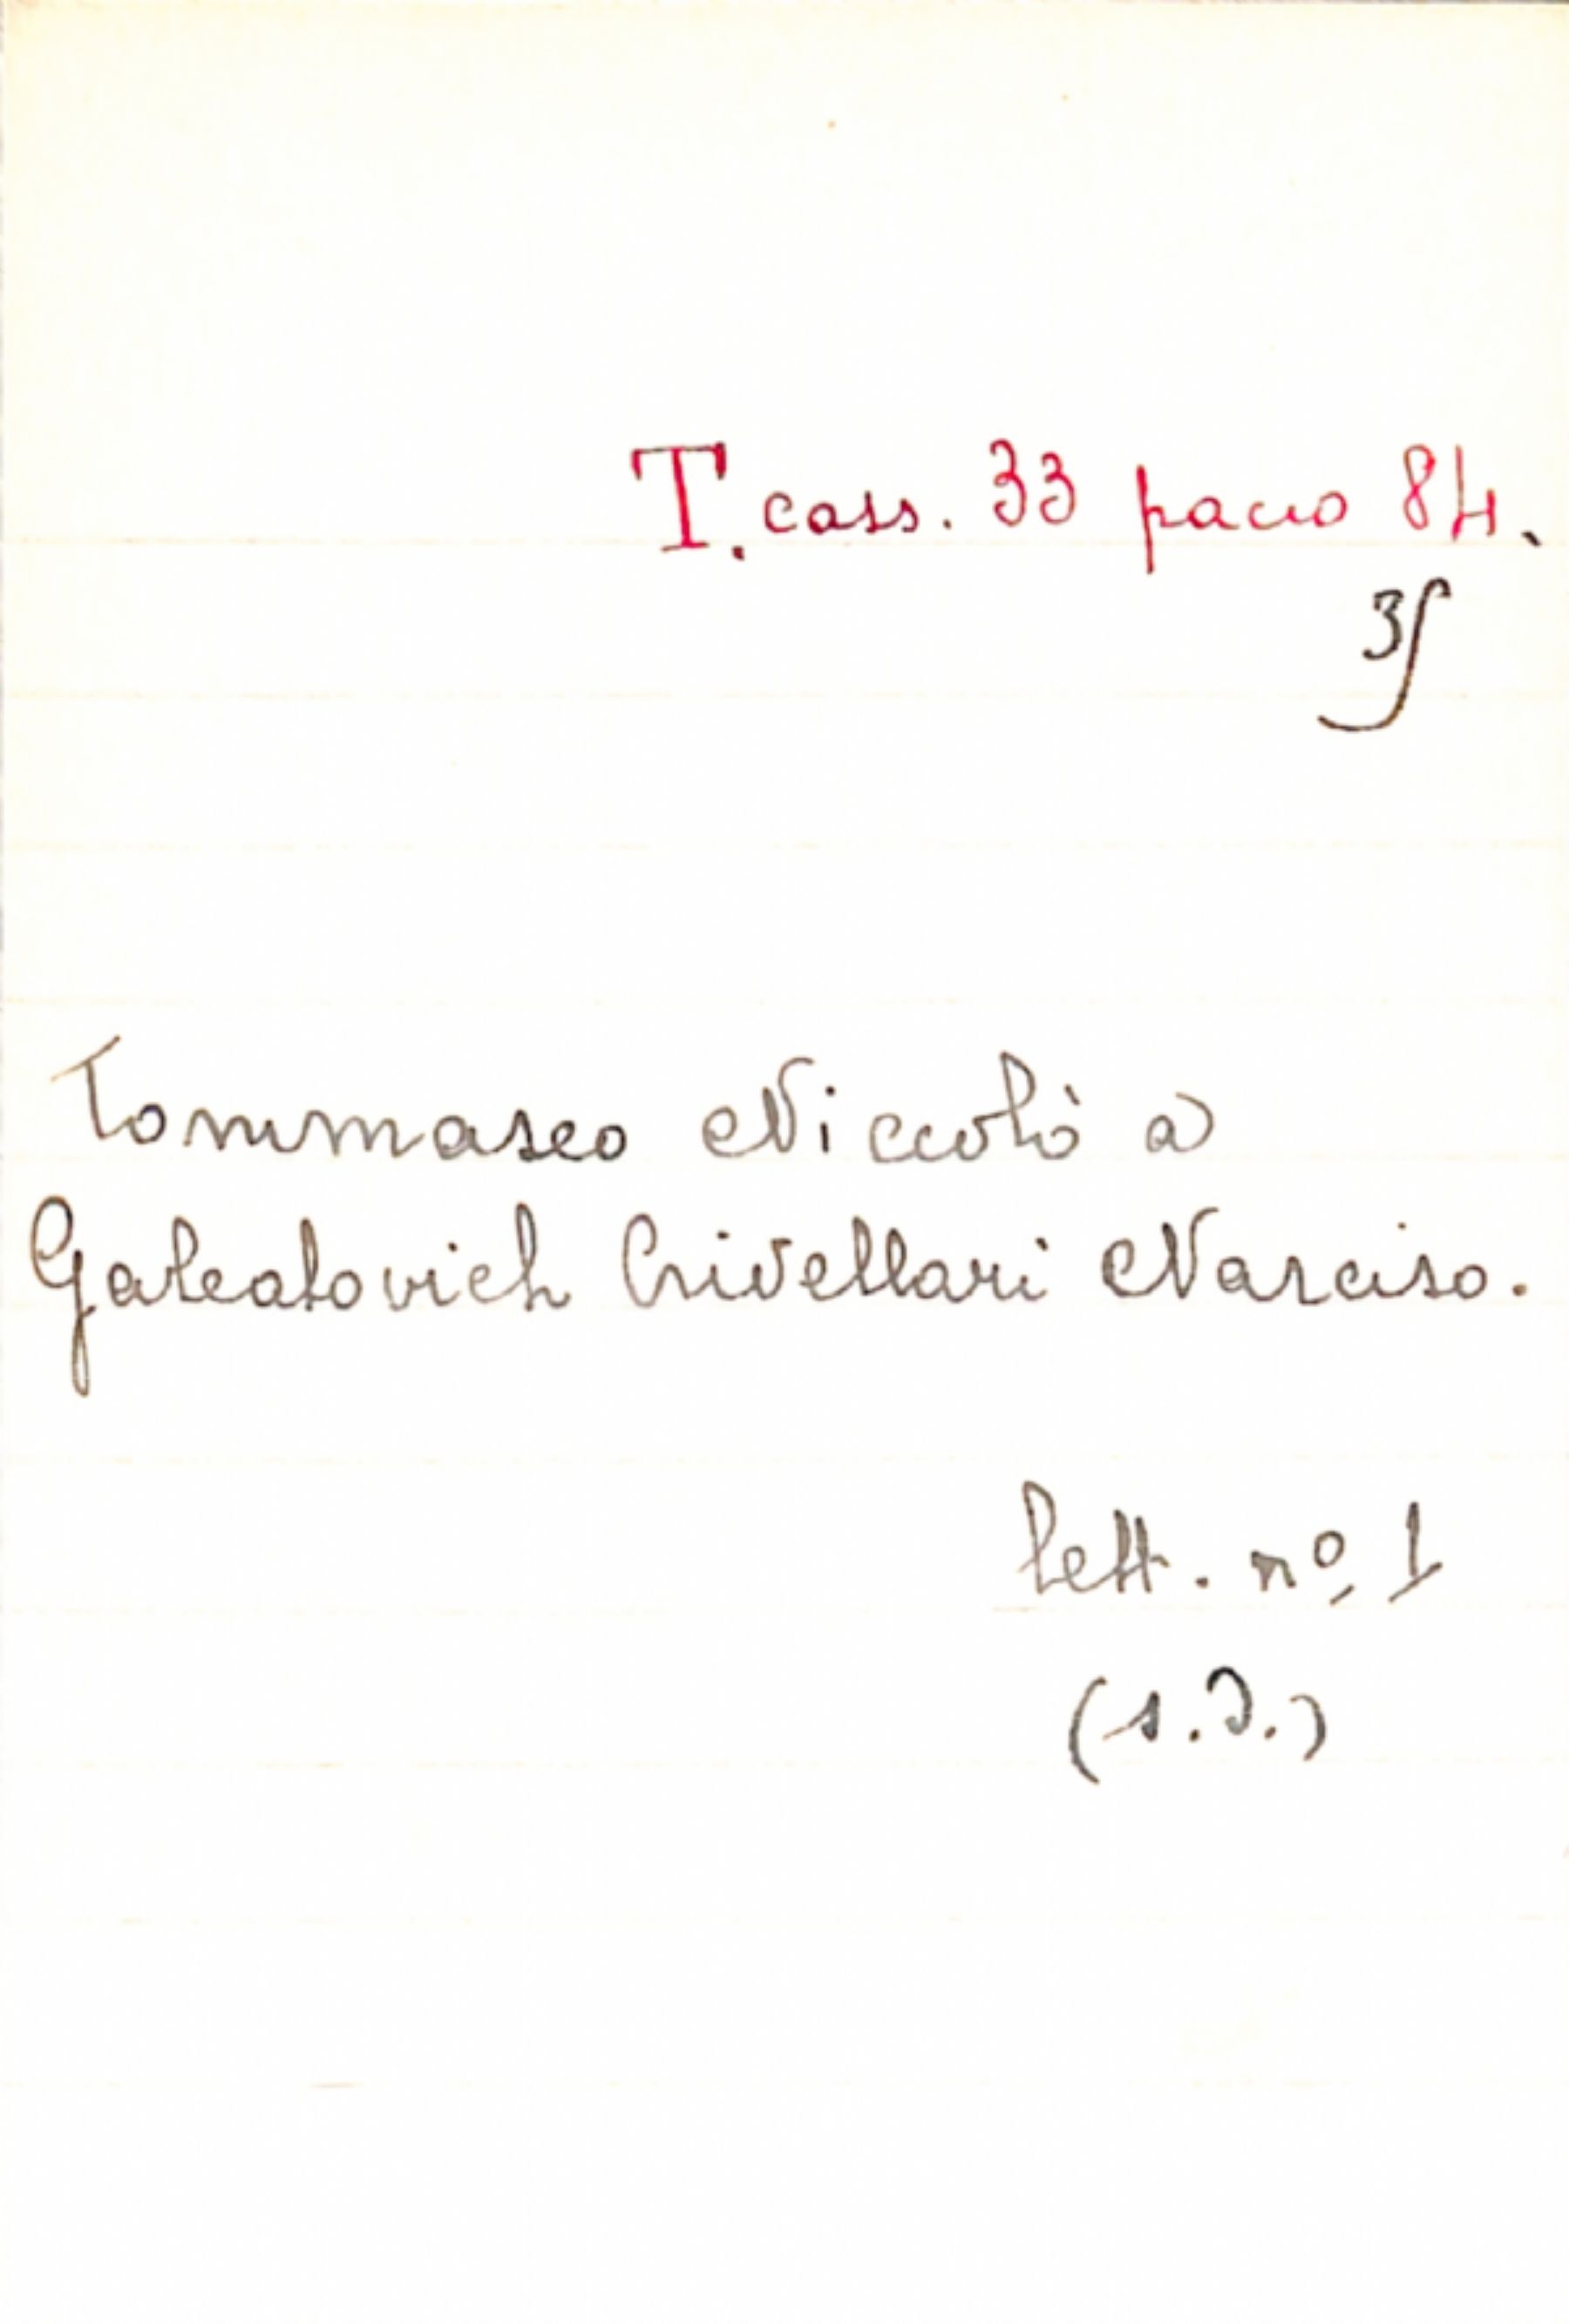 T. cass. 33 pacco 84.
3
Tommaseo Niccolò a
Galeatovich Crivellari Narciso.
lett. nº 1
(s.d.)